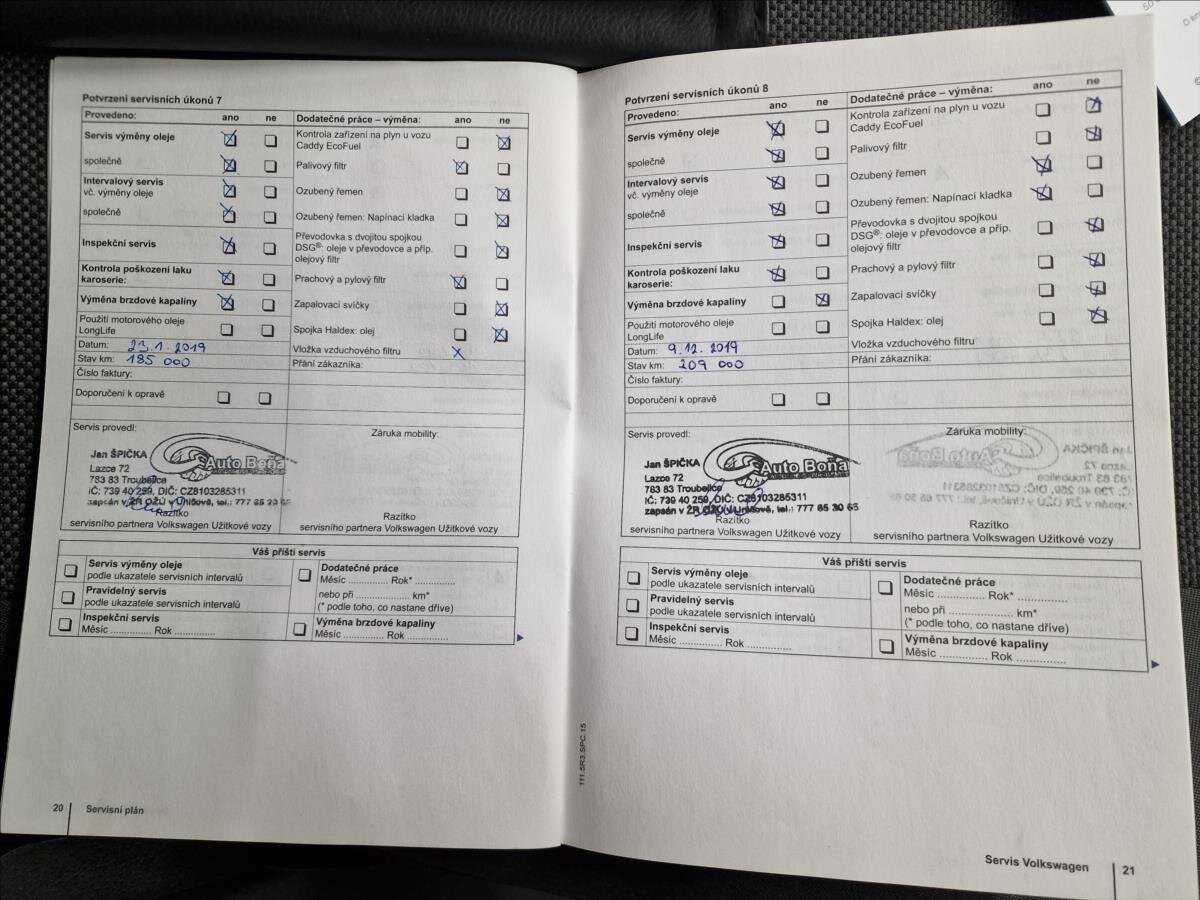 Potvrzení servisních úkonů 7
Provedeno: ano ne Dodatečné práce – výměna: ano ne
Servis výměny oleje
Kontrola zařízení na plyn u vozu
Caddy EcoFuel
společně
Palivový filtr
Intervalový servis
vč. výměny oleje
Ozubený řemen
společně
Ozubený řemen: Napínací kladka
Inspekční servis
Převodovka s dvojitou spojkou
DSG®: oleje v převodovce a příp.
olejový filtr
Kontrola poškození laku
karoserie:
Prachový a pylový filtr
Výměna brzdové kapaliny
Zapalovací svíčky
Použití motorového oleje
LongLife
Spojka Haldex: olej
Datum: 23.1.2019
Vložka vzduchového filtru X
Stav km: 185 000
Přání zákazníka:
Číslo faktury:
Doporučení k opravě
Servis provedl:
Záruka mobility:
Jan ŠPIČKA
Auto Boňa
Lazce 72
783 83 Troubelice
IČ: 739 40 259, DIČ: CZ8103285311
zapsán v ŽR OŽÚ v Uničově, tel.: 777 85 30 65
Razítko
servisního partnera Volkswagen Užitkové vozy
Razítko
servisního partnera Volkswagen Užitkové vozy
Váš příští servis
Servis výměny oleje
podle ukazatele servisních intervalů
Pravidelný servis
podle ukazatele servisních intervalů
Inspekční servis
Měsíc ............. Rok .............
Dodatečné práce
Měsíc ............. Rok* .............
nebo při ..................... km*
(* podle toho, co nastane dříve)
Výměna brzdové kapaliny
Měsíc ............. Rok .............
20 Servisní plán
Potvrzení servisních úkonů 8
Provedeno: ano ne Dodatečné práce – výměna: ano ne
Servis výměny oleje
Kontrola zařízení na plyn u vozu
Caddy EcoFuel
společně
Palivový filtr
Intervalový servis
vč. výměny oleje
Ozubený řemen
společně
Ozubený řemen: Napínací kladka
Inspekční servis
Převodovka s dvojitou spojkou
DSG®: oleje v převodovce a příp.
olejový filtr
Kontrola poškození laku
karoserie:
Prachový a pylový filtr
Výměna brzdové kapaliny
Zapalovací svíčky
Použití motorového oleje
LongLife
Spojka Haldex: olej
Datum: 9.12.2019
Vložka vzduchového filtru
Stav km: 209 000
Přání zákazníka:
Číslo faktury:
Doporučení k opravě
Servis provedl:
Záruka mobility:
Jan ŠPIČKA
Auto Boňa
Lazce 72
783 83 Troubelice
IČ: 739 40 259, DIČ: CZ8103285311
zapsán v ŽR OŽÚ v Uničově, tel.: 777 85 30 65
Razítko
servisního partnera Volkswagen Užitkové vozy
Razítko
servisního partnera Volkswagen Užitkové vozy
Váš příští servis
Servis výměny oleje
podle ukazatele servisních intervalů
Pravidelný servis
podle ukazatele servisních intervalů
Inspekční servis
Měsíc ............. Rok .............
Dodatečné práce
Měsíc ............. Rok* .............
nebo při ..................... km*
(* podle toho, co nastane dříve)
Výměna brzdové kapaliny
Měsíc ............. Rok .............
111.5R3.SPC.15
Servis Volkswagen 21